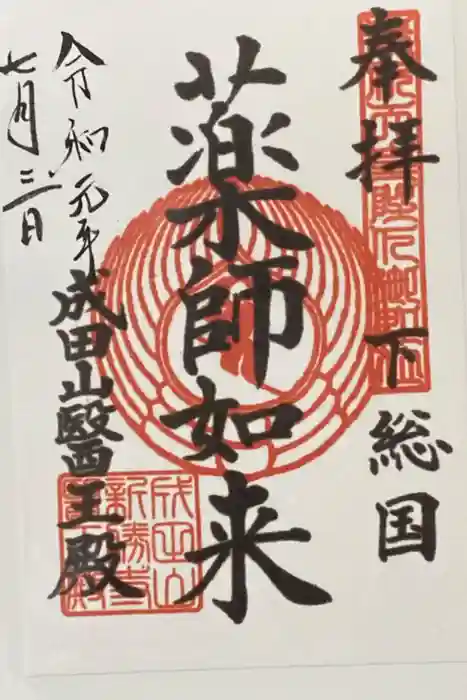 奉拝
下総国
薬師如来
令和元年
七月三日
成田山醫王殿
成田山
新勝寺